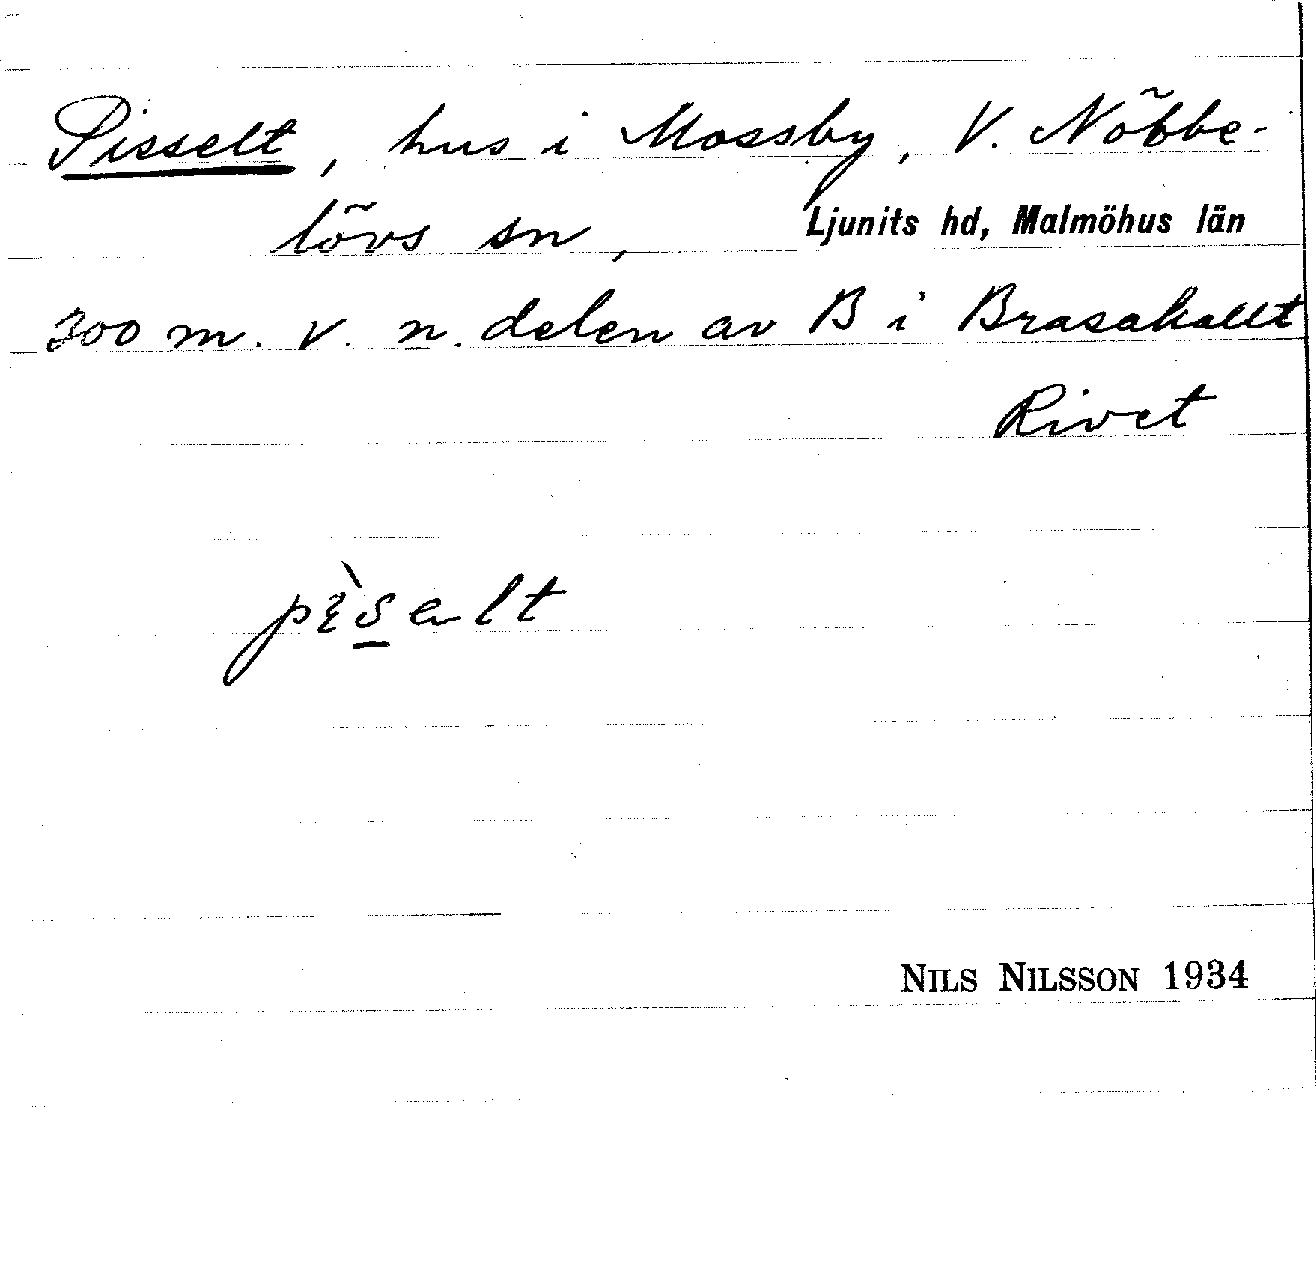 Pisselt, hus i Mossby, V. Nöbbe-
lövs sn, Ljunits hd, Malmöhus län
300 m. v. n. delen av B i Brasakallt
Rivet
pìsalt
NILS NILSSON 1934